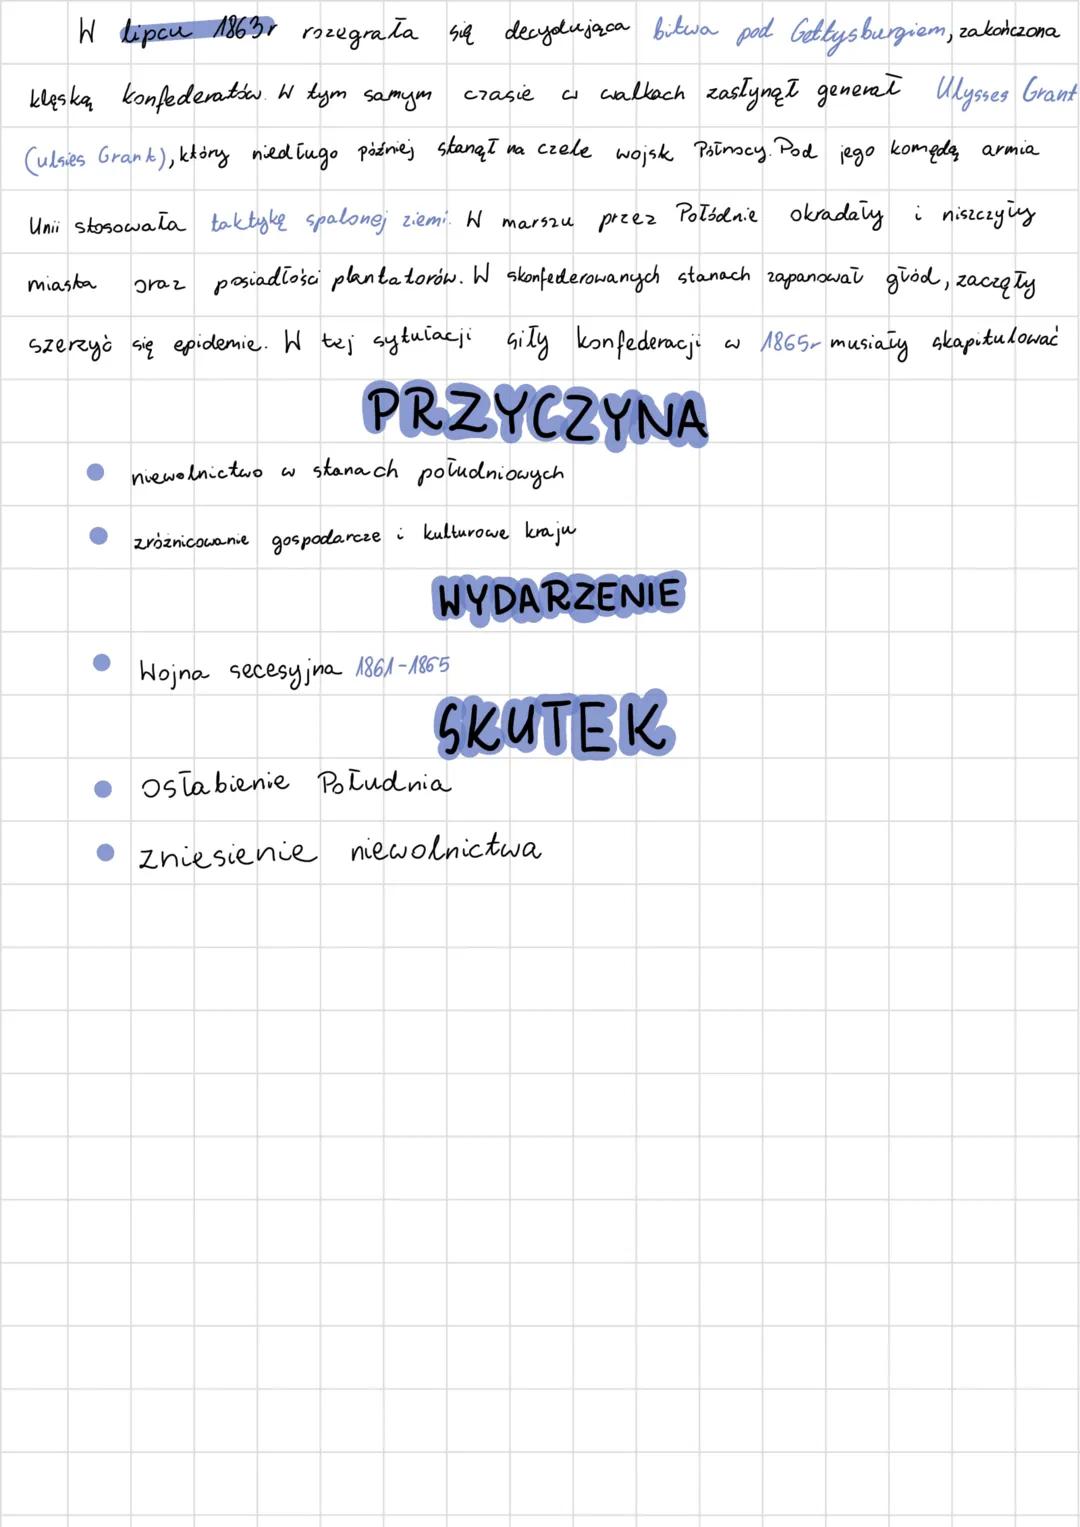 W lipcu 1863r rozegrała się decydująca bitwa pod Gettysburgiem, zakończona
klęską konfederatów. W tym samym czasie w walkach zasłynął generał Ulysses Grant
(ulsies Grant), który niedługo później stanął na czele wojsk Północy. Pod jego komędą armia
Unii stosowała taktykę spalonej ziemi. W marszu przez Połódnie okradały i niszczyły
miasta oraz posiadłości plantatorów. W skonfederowanych stanach zapanował głód, zaczęły
szerzyć się epidemie. W tej sytutacji siły konfederacji w 1865r musiały skapitulować
PRZYCZYNA
niewolnictwo w stanach południowych
zróżnicowanie gospodarcze i kulturowe kraju
WYDARZENIE
Wojna secesyjna 1861-1865
SKUTEK
Osłabienie Południa
zniesienie niewolnictwa